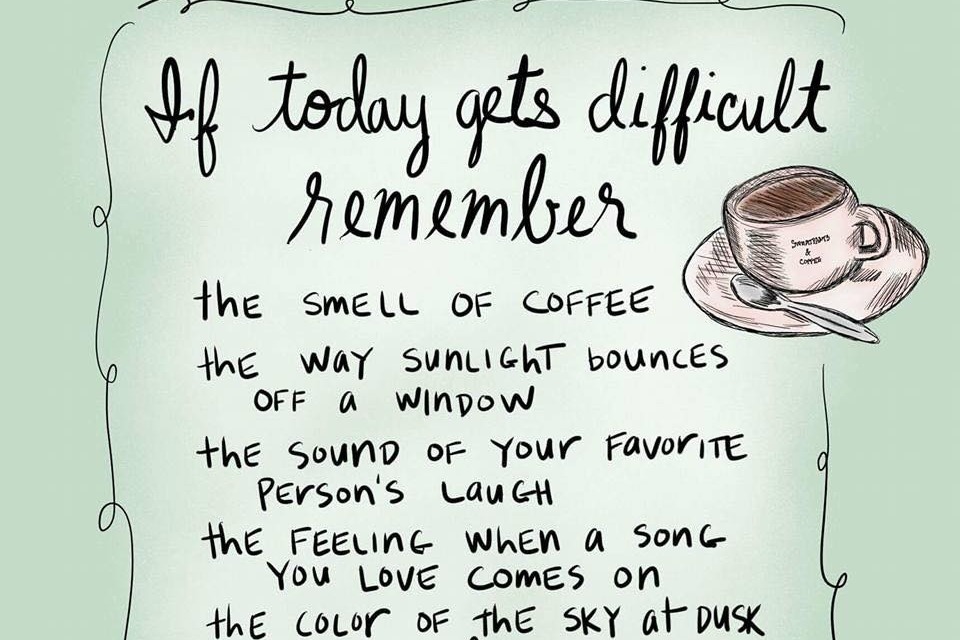 If today gets difficult
remember
the SMELL OF COFFEE
the way sunlight bounces
OFF a WINDOW
the sound OF your Favorite
Person's Laugh
the FEELING when a song
you LOVE comes on
the color OF the SKY at DUSK
&
COFFEE